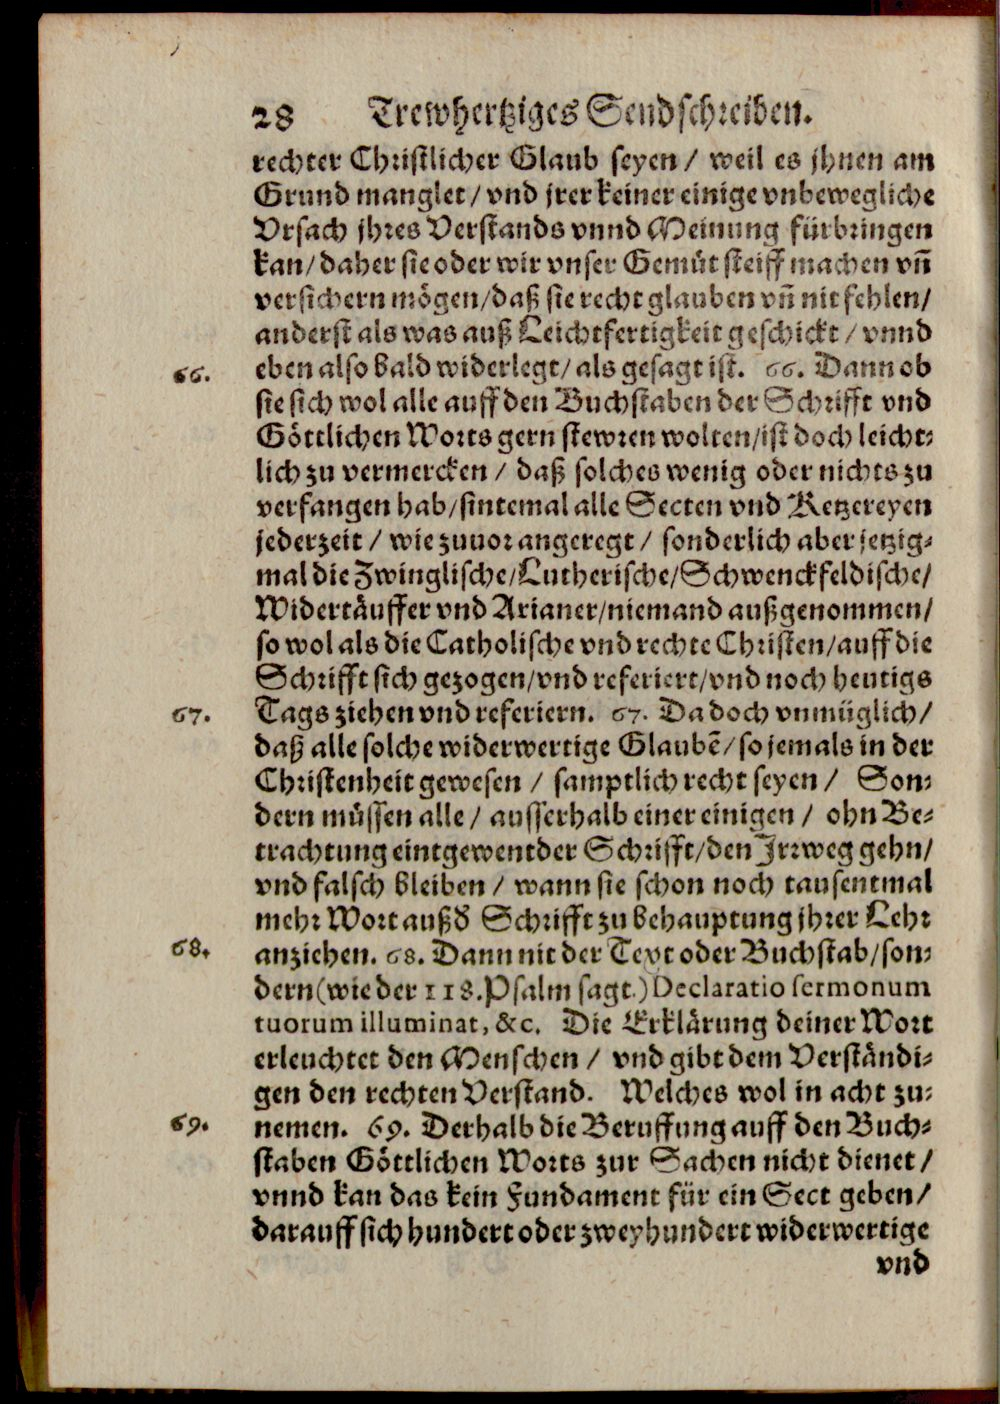 28 Trewhertziges Sendschreiben.
rechter Christlicher Glaub seyen / weil es jhnen am
Grund manglet / vnd jrer keiner einige vnbewegliche
Vrsach jhres Verstands vnnd Meinung fürbringen
kan / daher sie oder wir vnser Gemüt steiff machen vñ
versichern mögen / daß sie recht glauben vñ nit fehlen /
anderst als was auß Leichtfertigkeit geschickt / vnnd
66. eben also bald widerlegt / als gesagt ist. 66. Dann ob
sie sich wol alle auff den Buchstaben der Schrifft vnd
Göttlichen Worts gern stewren wolten / ist doch leicht⸗
lich zu vermercken / daß solches wenig oder nichts zu
verfangen hab / sintemal alle Secten vnd Ketzereyen
jederzeit / wie zuuor angeregt / sonderlich aber jetzig⸗
mal die Zwinglische / Lutherische / Schwenckfeldische /
Widertäuffer vnd Arianer / niemand außgenommen /
so wol als die Catholische vnd rechte Christen / auff die
Schrifft sich gezogen / vnd referiert / vnd noch heutigs
67. Tags ziehen vnd referiern. 67. Da doch vnmüglich /
daß alle solche widerwertige Glaubẽ / so jemals in der
Christenheit gewesen / samptlich recht seyen / Son⸗
dern müssen alle / ausserhalb einer einigen / ohn Be⸗
trachtung eintgewentder Schrifft / den Irrweg gehn /
vnd falsch bleiben / wann sie schon noch tausentmal
mehr Wort auß d̕ Schrifft zu behauptung jhrer Lehr
68. anziehen. 68. Dann nit der Text oder Buchstab / son⸗
dern (wie der 118. Psalm sagt.) Declaratio sermonum
tuorum illuminat, &c. Die Erklärung deiner Wort
erleuchtet den Menschen / vnd gibt dem Verständi⸗
gen den rechten Verstand. Welches wol in acht zu⸗
69. nemen. 69. Derhalb die Beruffung auff den Buch⸗
staben Göttlichen Worts zur Sachen nicht dienet /
vnnd kan das kein Fundament für ein Sect geben /
darauff sich hundert oder zweyhundert widerwertige
vnd